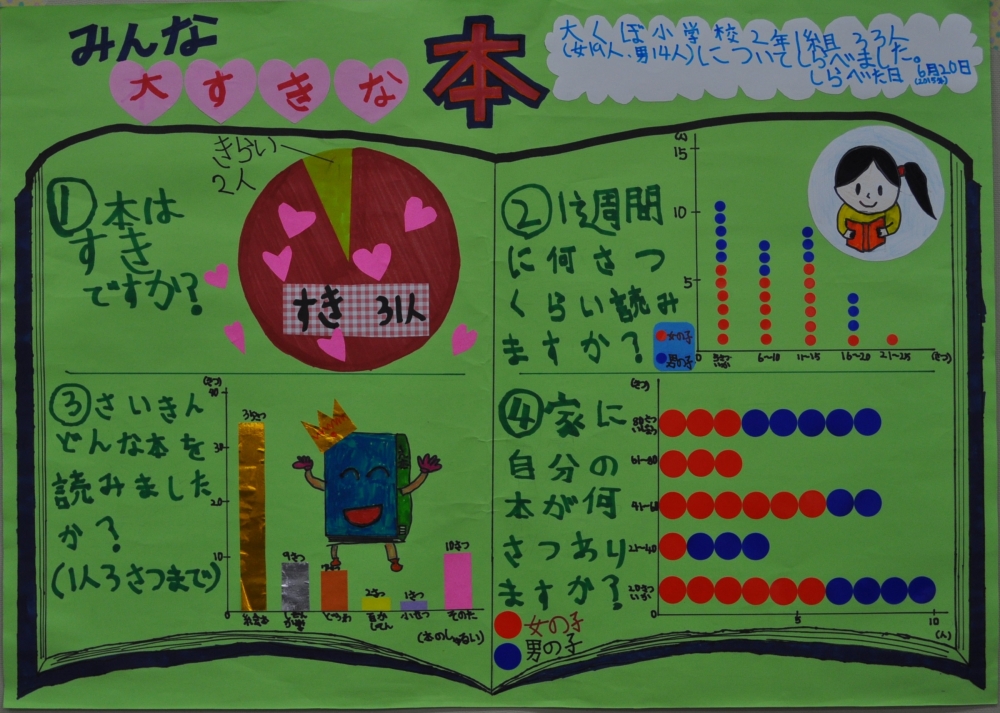 みんな
大すきな
本
大くぼ小学校2年1組33人
(女19人・男14人)についてしらべました。
しらべた日 6月20日
(2015年)
① 本は
すき
ですか?
きらい
2人
すき 31人
② 1週間
に何さつ
くらい読み
ますか?
女の子
男の子
15
10
5
0
6~10
11~15
16~20
21~25
(さつ)
③ さいきん
どんな本を
読みました
か?
(1人3さつまで)
(さつ)
40
30
20
10
0
9さつ
2さつ
1さつ
10さつ
絵本
その他
④ 家に
自分の
本が何
さつあり
ますか?
61~80
41~60
21~40
20さつ
いか
0
5
10
(人)
女の子
男の子